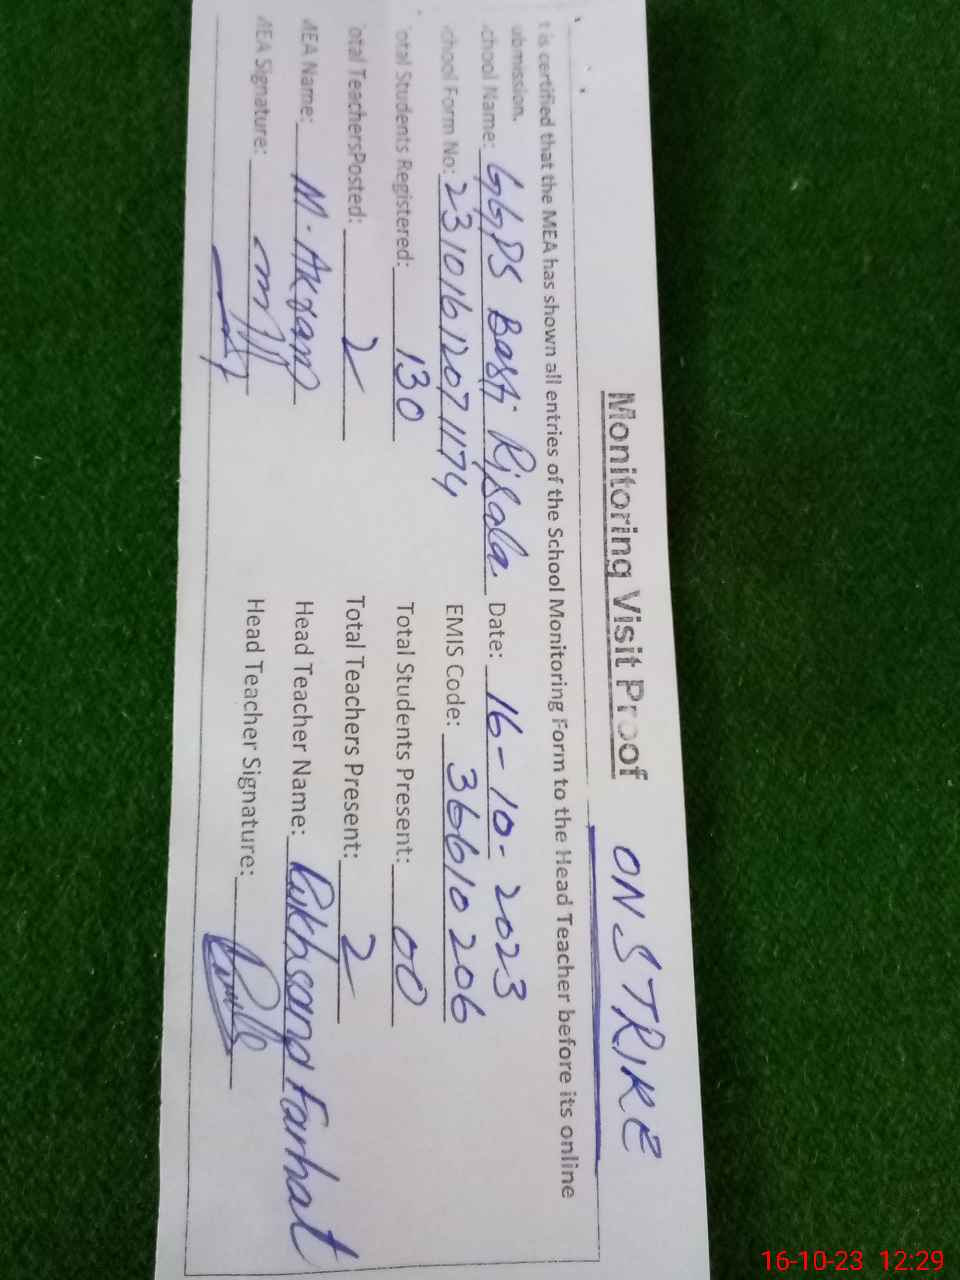 Monitoring Visit Proof ON STRIKE
t is certified that the MEA has shown all entries of the School Monitoring Form to the Head Teacher before its online
ubmission.
chool Name: GGPS Basti Risala Date: 16-10-2023
chool Form No: 23101612071174 EMIS Code: 36610206
otal Students Registered: 130 Total Students Present: 00
otal TeachersPosted: 2 Total Teachers Present: 2
MEA Name: M. Akram Head Teacher Name: Rukhsana Farhat
MEA Signature: Head Teacher Signature:
16-10-23 12:29